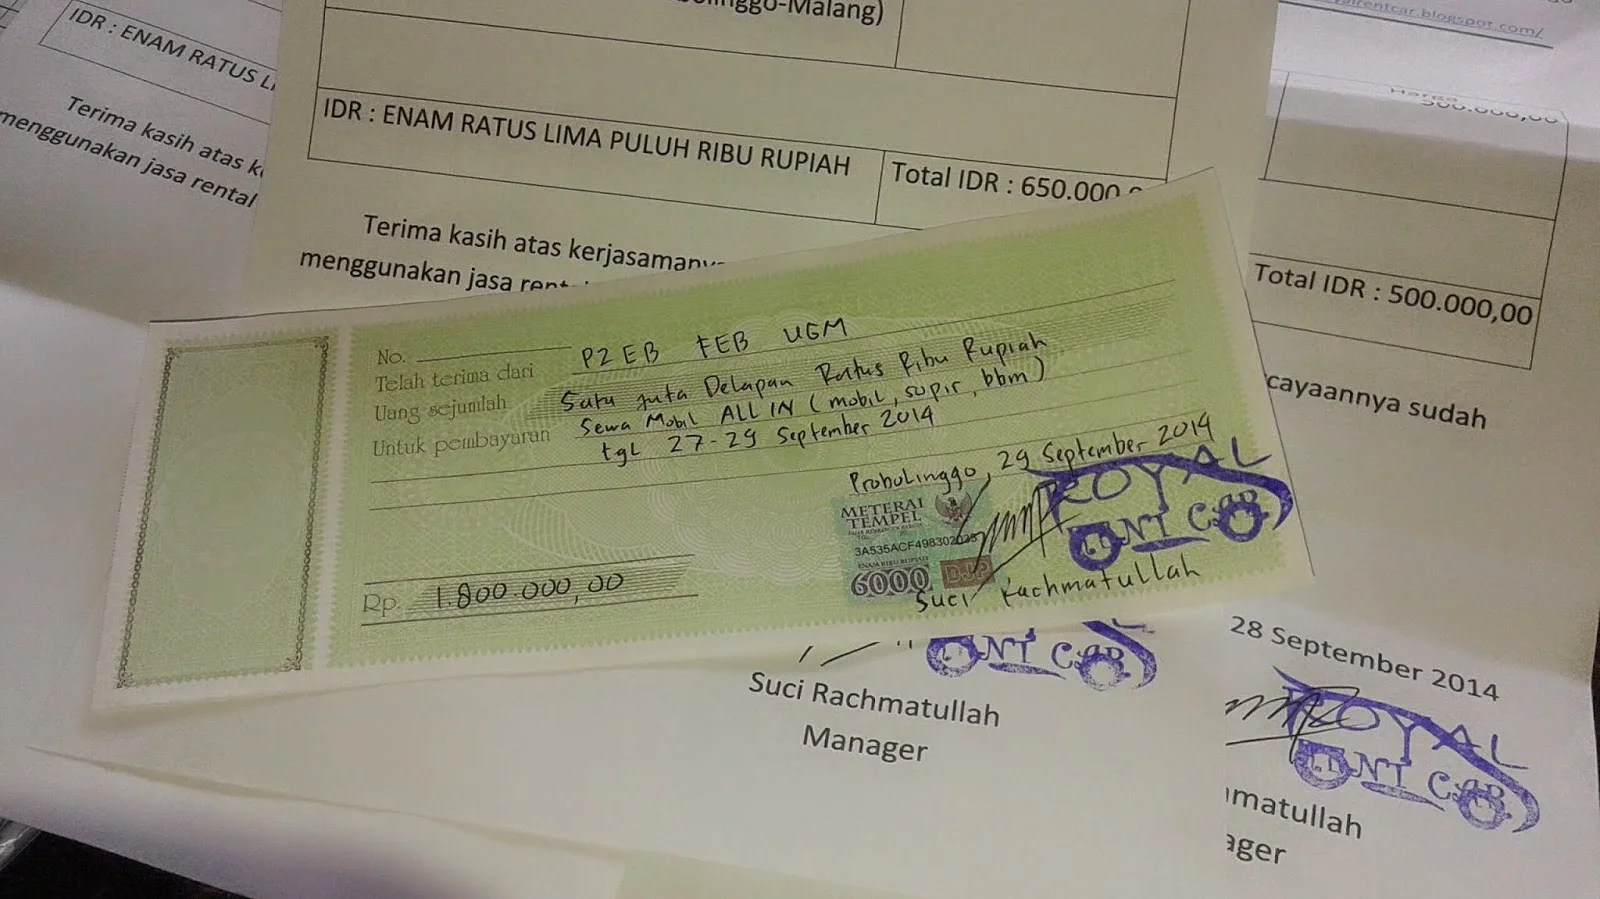 olinggo-Malang)
IDR : ENAM RATUS LIMA PULUH RIBU RUPIAH
Total IDR : 650.000
Terima kasih atas kerjasamany
menggunakan jasa rent
IDR : ENAM RATUS LI
Terima kasih atas k
menggunakan jasa rental
rentcar.blogspot.com/
Harga
500.000,00
Total IDR : 500.000,00
cayaannya sudah
No.
Telah terima dari P2EB FEB UGM
Uang sejumlah Satu Juta Delapan Ratus Ribu Rupiah
Untuk pembayaran Sewa Mobil ALL IN (mobil, supir, bbm)
tgl 27-29 September 2014
Probolinggo, 29 September 2014
METERAI
TEMPEL
3A535ACF498302035
ENAM RIBU RUPIAH
6000 DJP
ROYAL
RENT CAR
Suci Rachmatullah
Rp. 1.800.000,00
RENT CAR
Suci Rachmatullah
Manager
28 September 2014
ROYAL
RENT CAR
matullah
ager